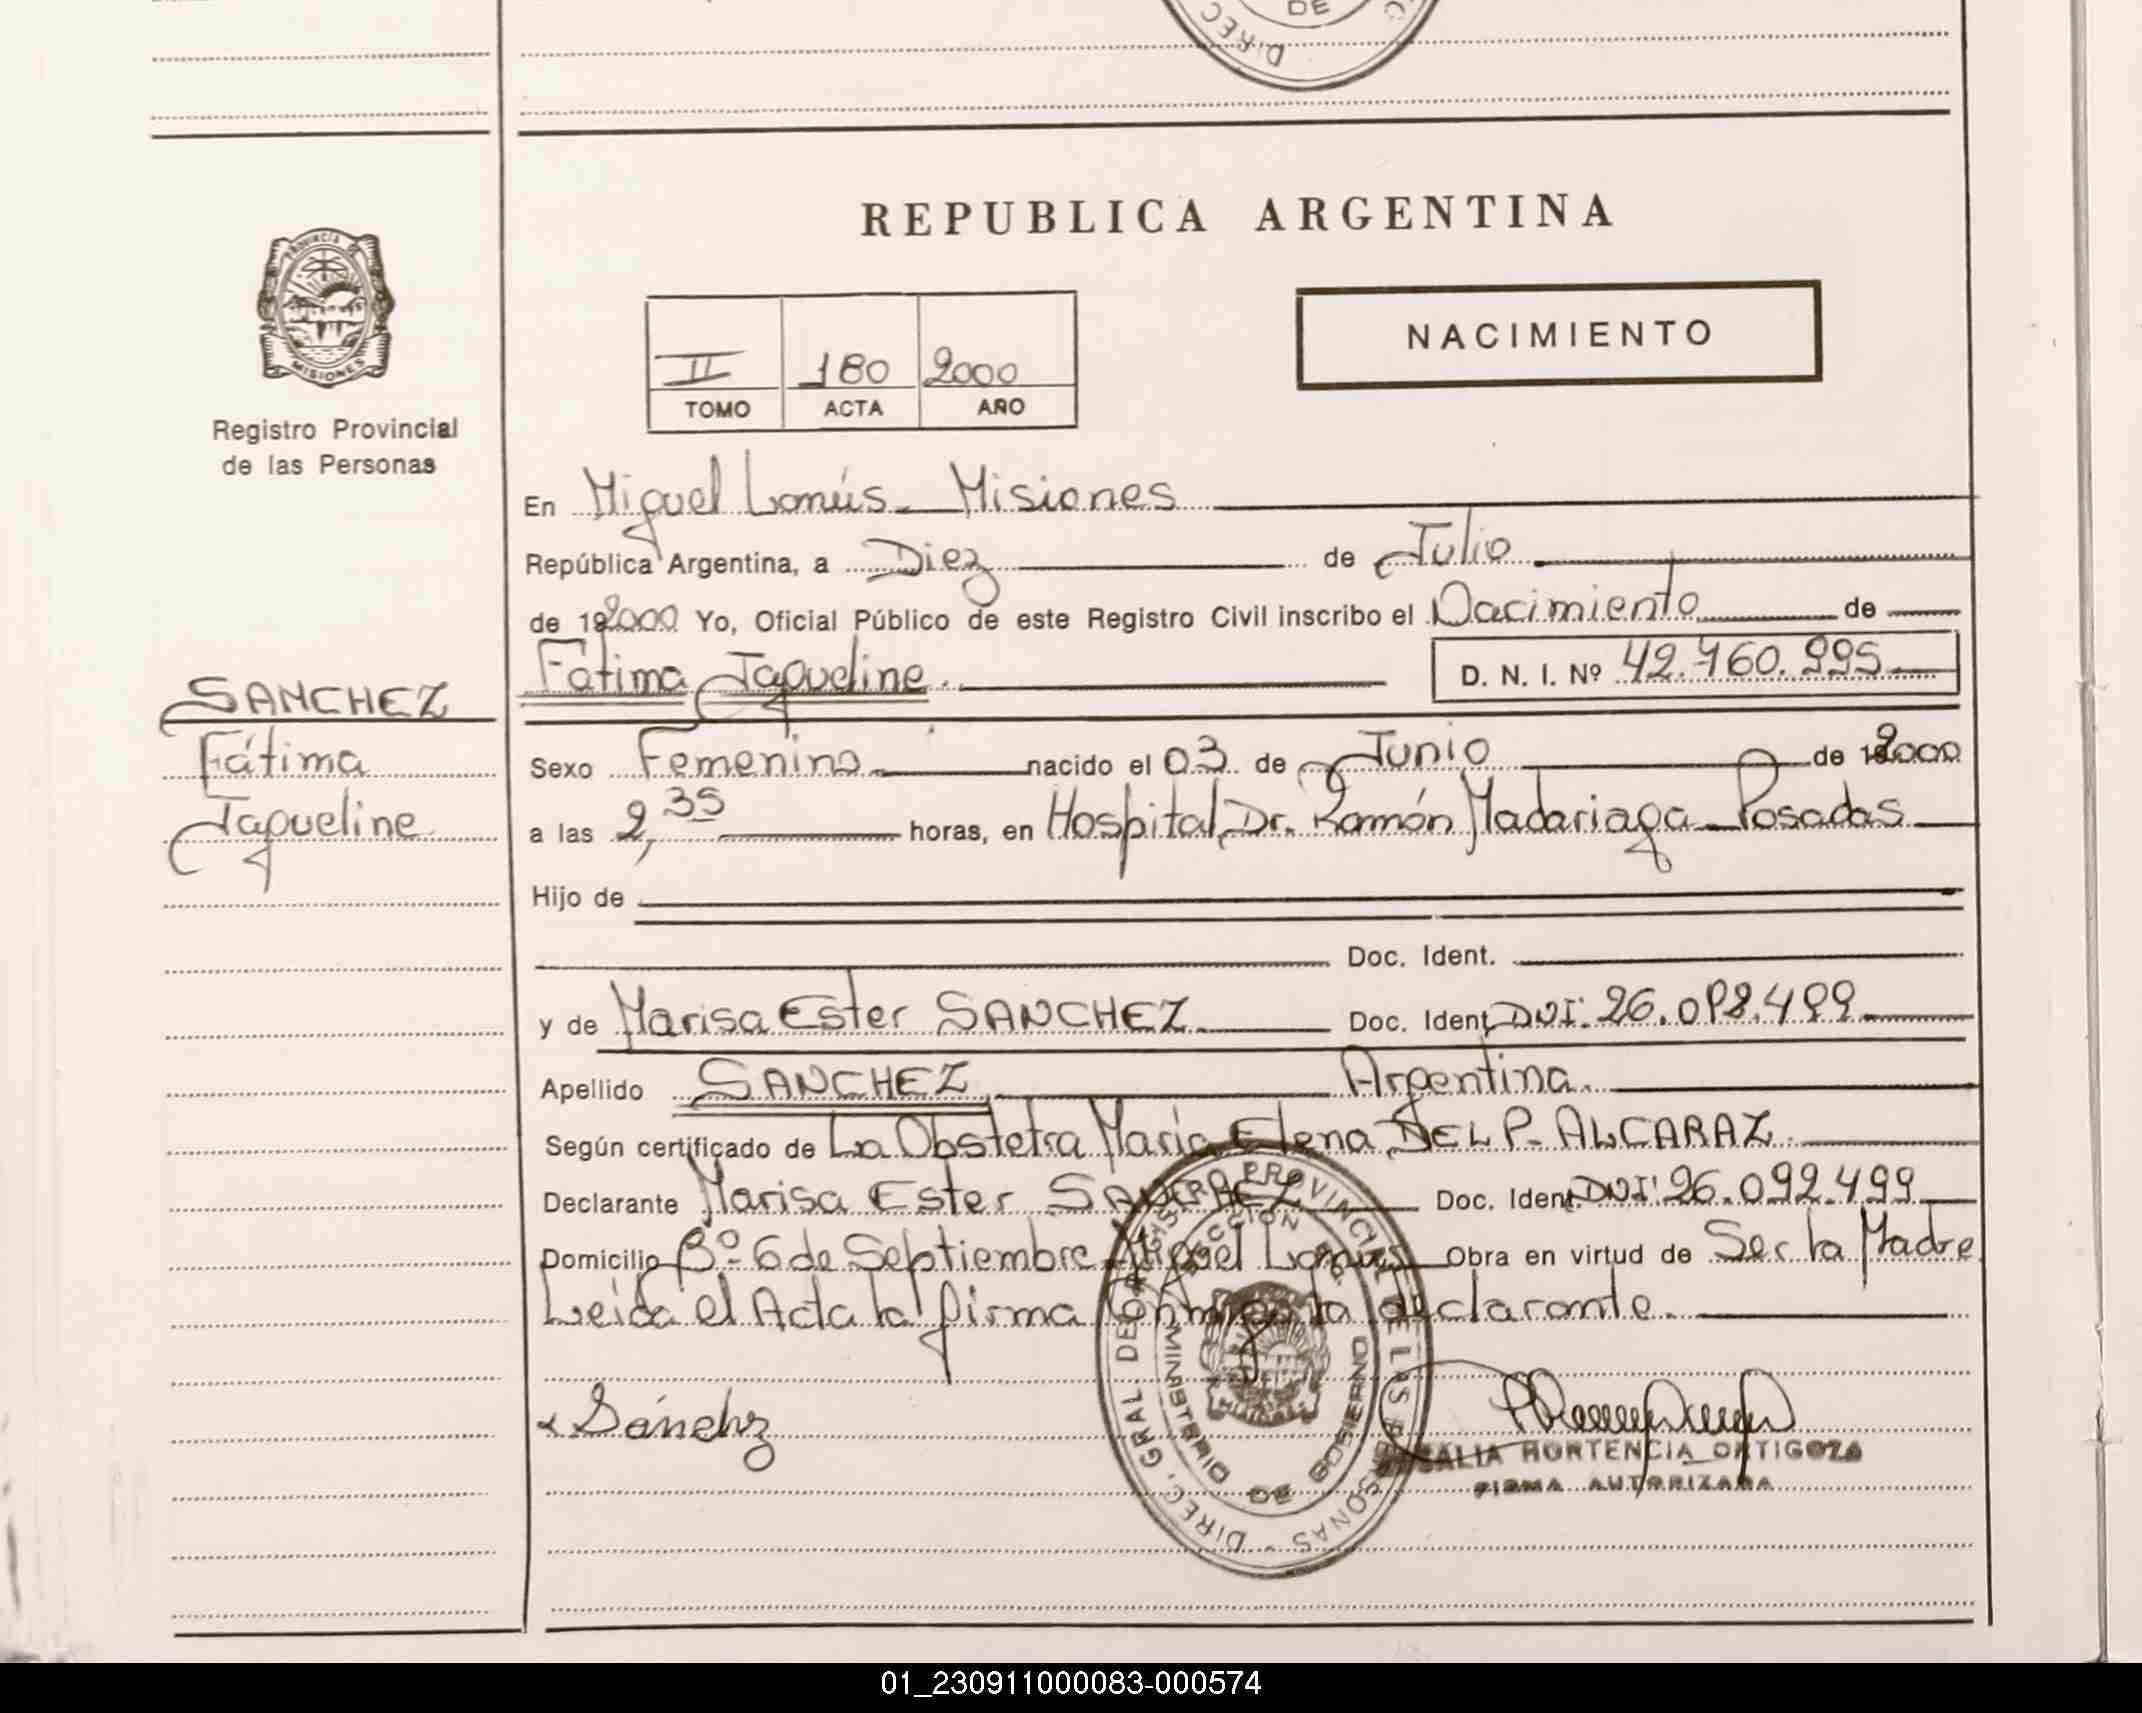 DE
DIREC
REPUBLICA ARGENTINA
PROVINCIA DE
MISIONES
NACIMIENTO
II 180 2000
TOMO ACTA AÑO
Registro Provincial
de las Personas
En Miguel Lanús - Misiones
República Argentina, a Diez de Julio
de 192000 Yo, Oficial Público de este Registro Civil inscribo el Nacimiento de
Fátima Jaqueline. D. N. I. Nº 42.460.995
SANCHEZ
Fátima
Jaqueline
Sexo Femenino nacido el 03 de Junio de 192000
a las 2,35 horas, en Hospital Dr. Ramón Madariaga - Posadas
Hijo de
Doc. Ident.
y de Marisa Ester SANCHEZ Doc. Ident. DNI: 26.092.499
Apellido SANCHEZ Argentina.
Según certificado de La Obstetra María Elena DEL P. ALCARAZ
Declarante Marisa Ester SANCHEZ Doc. Ident. DNI: 26.092.499
Domicilio Bº 6 de Septiembre - Miguel Lanús Obra en virtud de Ser la Madre
Leída el Acta la firma Conmigo la declarante.
Sánchz
DIREC. GRAL. DEL REGISTRO PROVINCIAL DE LAS PERSONAS
DIRECCION
MINISTERIO DE GOBIERNO
HORTENCIA ORTIGOZA
FIRMA AUTORIZADA
01_230911000083-000574